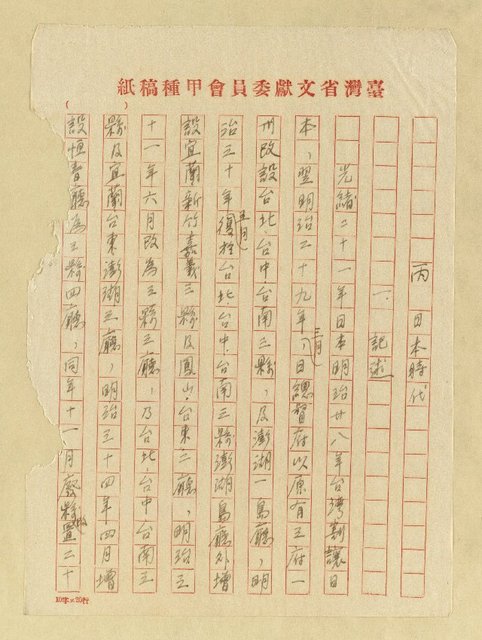 臺灣省文獻委員會甲種稿紙
丙 日本時代
一、記述
光緒二十一年日本明治廿八年台灣割讓日
本,翌明治二十九年三月八日總督府以原有三府一
州改設台北、台中台南三縣,及澎湖一島廳,明
治三十年五月復於台北台中、台南三縣澎湖島廳外增
設宜蘭新竹嘉義三縣及鳳山、台東二廳,明治三
十一年六月改為三縣三廳,及台北、台中台南三
縣及宜蘭台東澎湖三廳,明治三十四年四月增
設恒春廳為三縣四廳,同年十一月廢縣改置二十
10字×20行